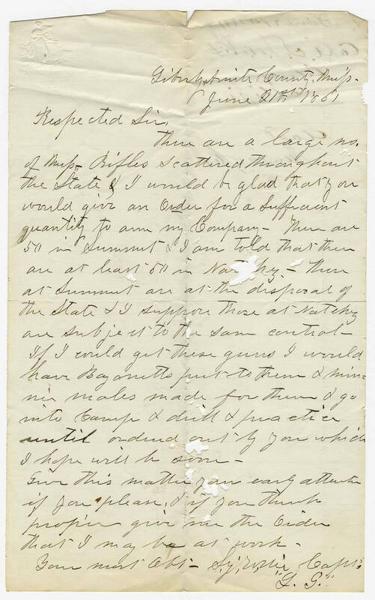 Liberty Amite County, Miss.
June 21st 1861
Respected Sir,
There are a large no.
of Miss. Rifles scattered throughout
the State & I would be glad that you
would give an Order for a sufficient
quantity to arm my Company - There are
50 in Summit & I am told that there
are at least 50 in Natchez - those
at Summit are at the disposal of
the State & I suppose those at Natchez
are subject to the same control -
If I could get these guns I would
have Bayonetts put to them &
made for them & go
into Camp & drill & practice
until ordered out by you which
I hope will be soon -
Give this matter your early attention
if you please, & if you think
proper give me the Order
that I may be at work -
Your most Obt - Capt.
"L. G."